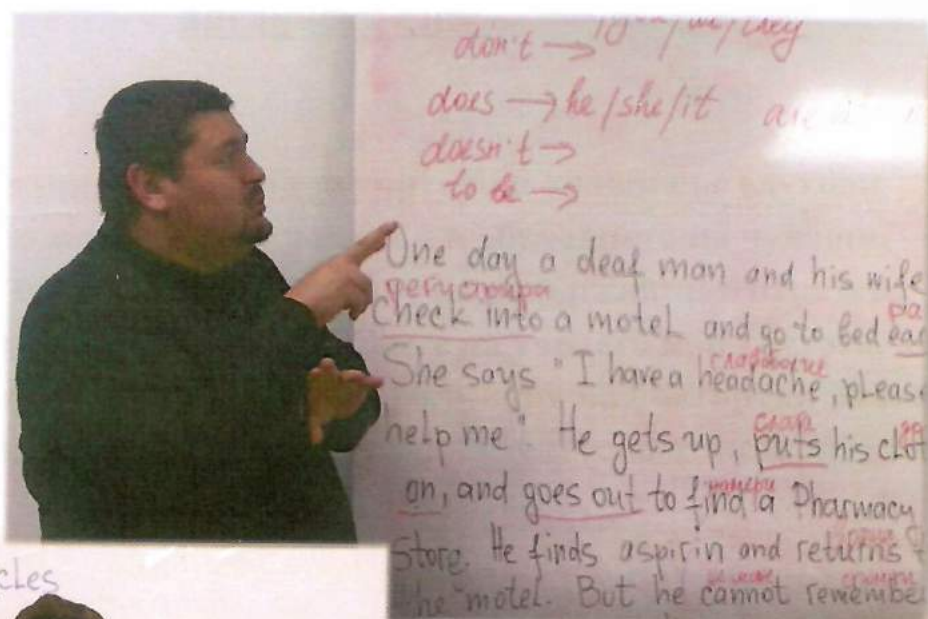 don't → you/we/they
does → he/she/it
doesn't →
to be →
One day a deaf man and his wife
check into a motel and go to bed
She says "I have a headache, please
help me". He gets up, puts his
on, and goes out to find a Pharmacy
Store. He finds aspirin and returns
the motel. But he cannot remember
cles